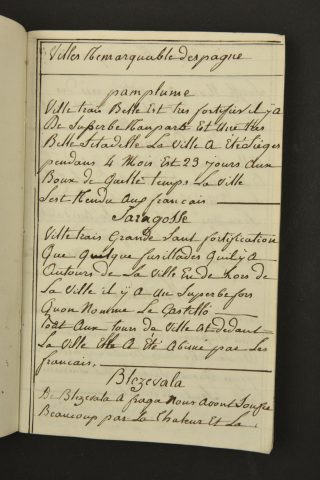 Villes Remarquable despagne
pamplume
Ville trais Belle Et tres fortifier il y A
De Superbe Rampard Et Une tres
Belle Sitadelle La Ville A Eté Siéges
pendans 4 Mois Est 23 Jours Aux
Boux de Quelle temps La Ville
Sest Rendu Aux francais
Saragosse
Ville trais Grande Sant fortification
Que Quelque fusillades Quil y A
Autours de La Ville En de hors de
La Ville il y A Un Superbe fors
Quon Nomme Le Castillo
tout Aux tours da Ville de dedant
La Ville Elle A Eté Abimé par Les
francais.
Blezevala
De Blezevala A fraga Nous Avont Soufre
Beaucoup par La Chaleur Et La